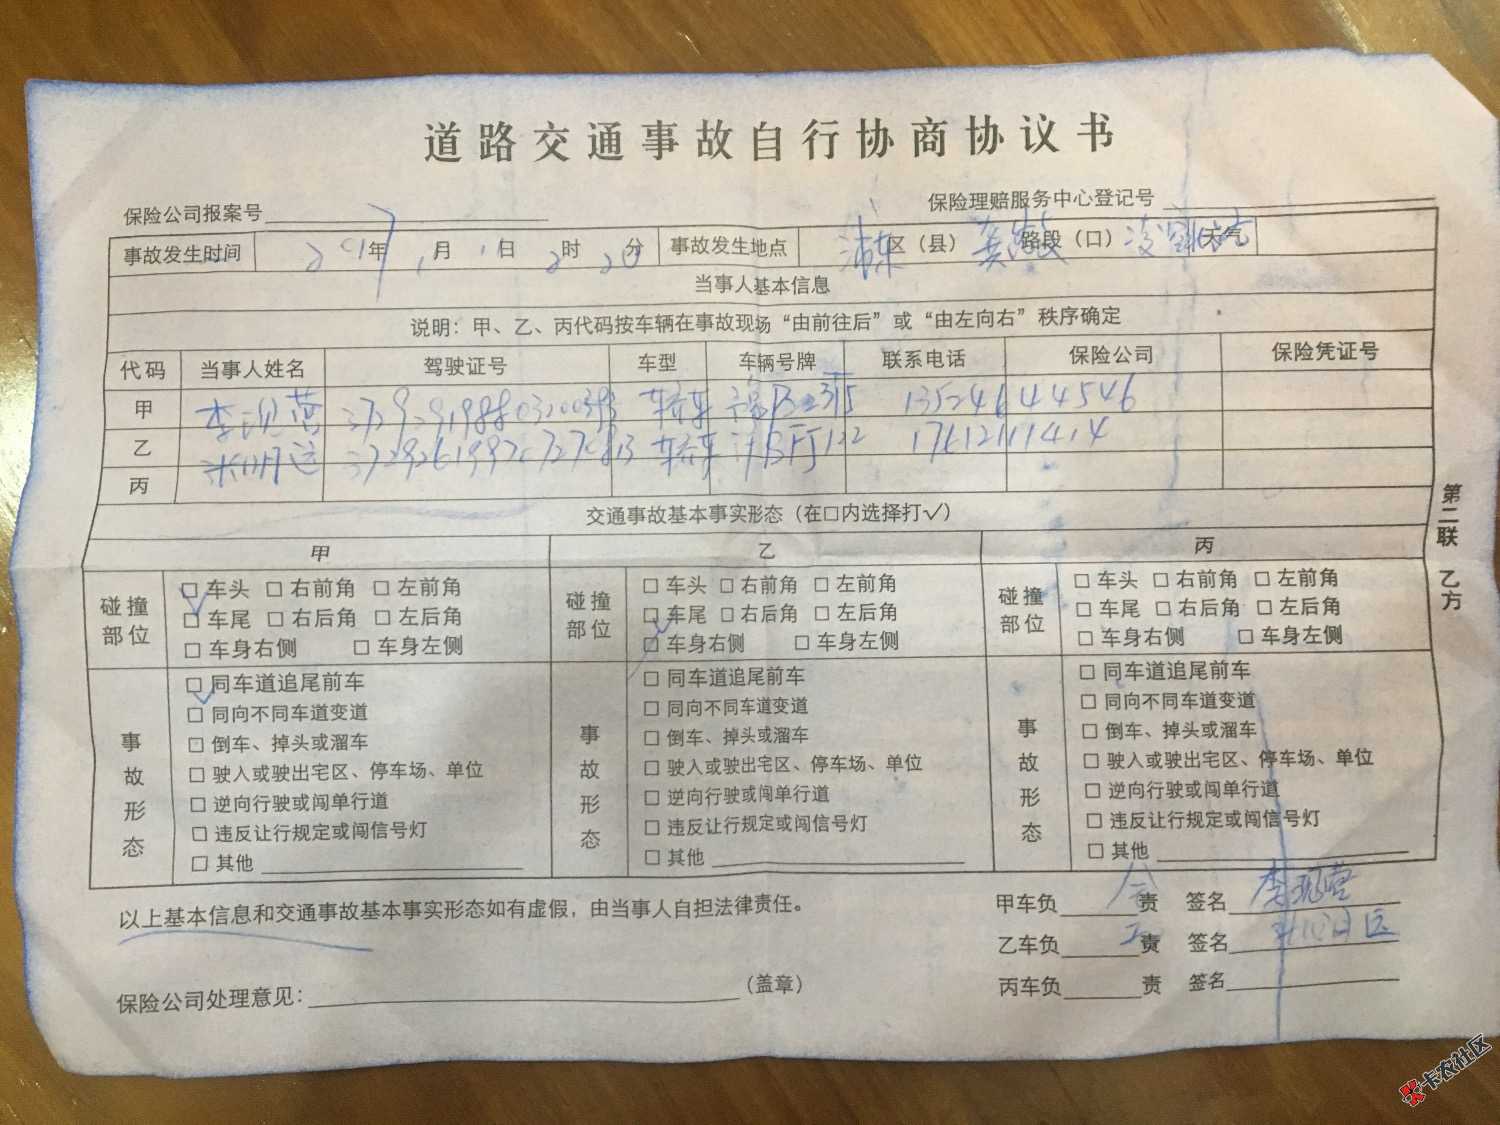 道路交通事故自行协商协议书
保险公司报案号 保险理赔服务中心登记号
事故发生时间 2017年1月1日2时20分 事故发生地点 浦东区（县） 路段（口） 天气
当事人基本信息
说明：甲、乙、丙代码按车辆在事故现场“由前往后”或“由左向右”秩序确定
代码 当事人姓名 驾驶证号 车型 车辆号牌 联系电话 保险公司 保险凭证号
甲 李 营 轿车 13524644546
乙 轿车 17612111414
丙
交通事故基本事实形态（在□内选择打✓）
甲 乙 丙
碰撞部位 □车头 □右前角 □左前角 碰撞部位 □车头 □右前角 □左前角 碰撞部位 □车头 □右前角 □左前角
□车尾 □右后角 □左后角 □车尾 □右后角 □左后角 □车尾 □右后角 □左后角
□车身右侧 □车身左侧 □车身右侧 □车身左侧 □车身右侧 □车身左侧
事故形态 □同车道追尾前车 事故形态 □同车道追尾前车 事故形态 □同车道追尾前车
□同向不同车道变道 □同向不同车道变道 □同向不同车道变道
□倒车、掉头或溜车 □倒车、掉头或溜车 □倒车、掉头或溜车
□驶入或驶出宅区、停车场、单位 □驶入或驶出宅区、停车场、单位 □驶入或驶出宅区、停车场、单位
□逆向行驶或闯单行道 □逆向行驶或闯单行道 □逆向行驶或闯单行道
□违反让行规定或闯信号灯 □违反让行规定或闯信号灯 □违反让行规定或闯信号灯
□其他 □其他 □其他
第二联 乙方
以上基本信息和交通事故基本事实形态如有虚假，由当事人自担法律责任。
甲车负 全 责 签名 李 营
乙车负 无 责 签名
丙车负 责 签名
保险公司处理意见： （盖章）
卡农社区